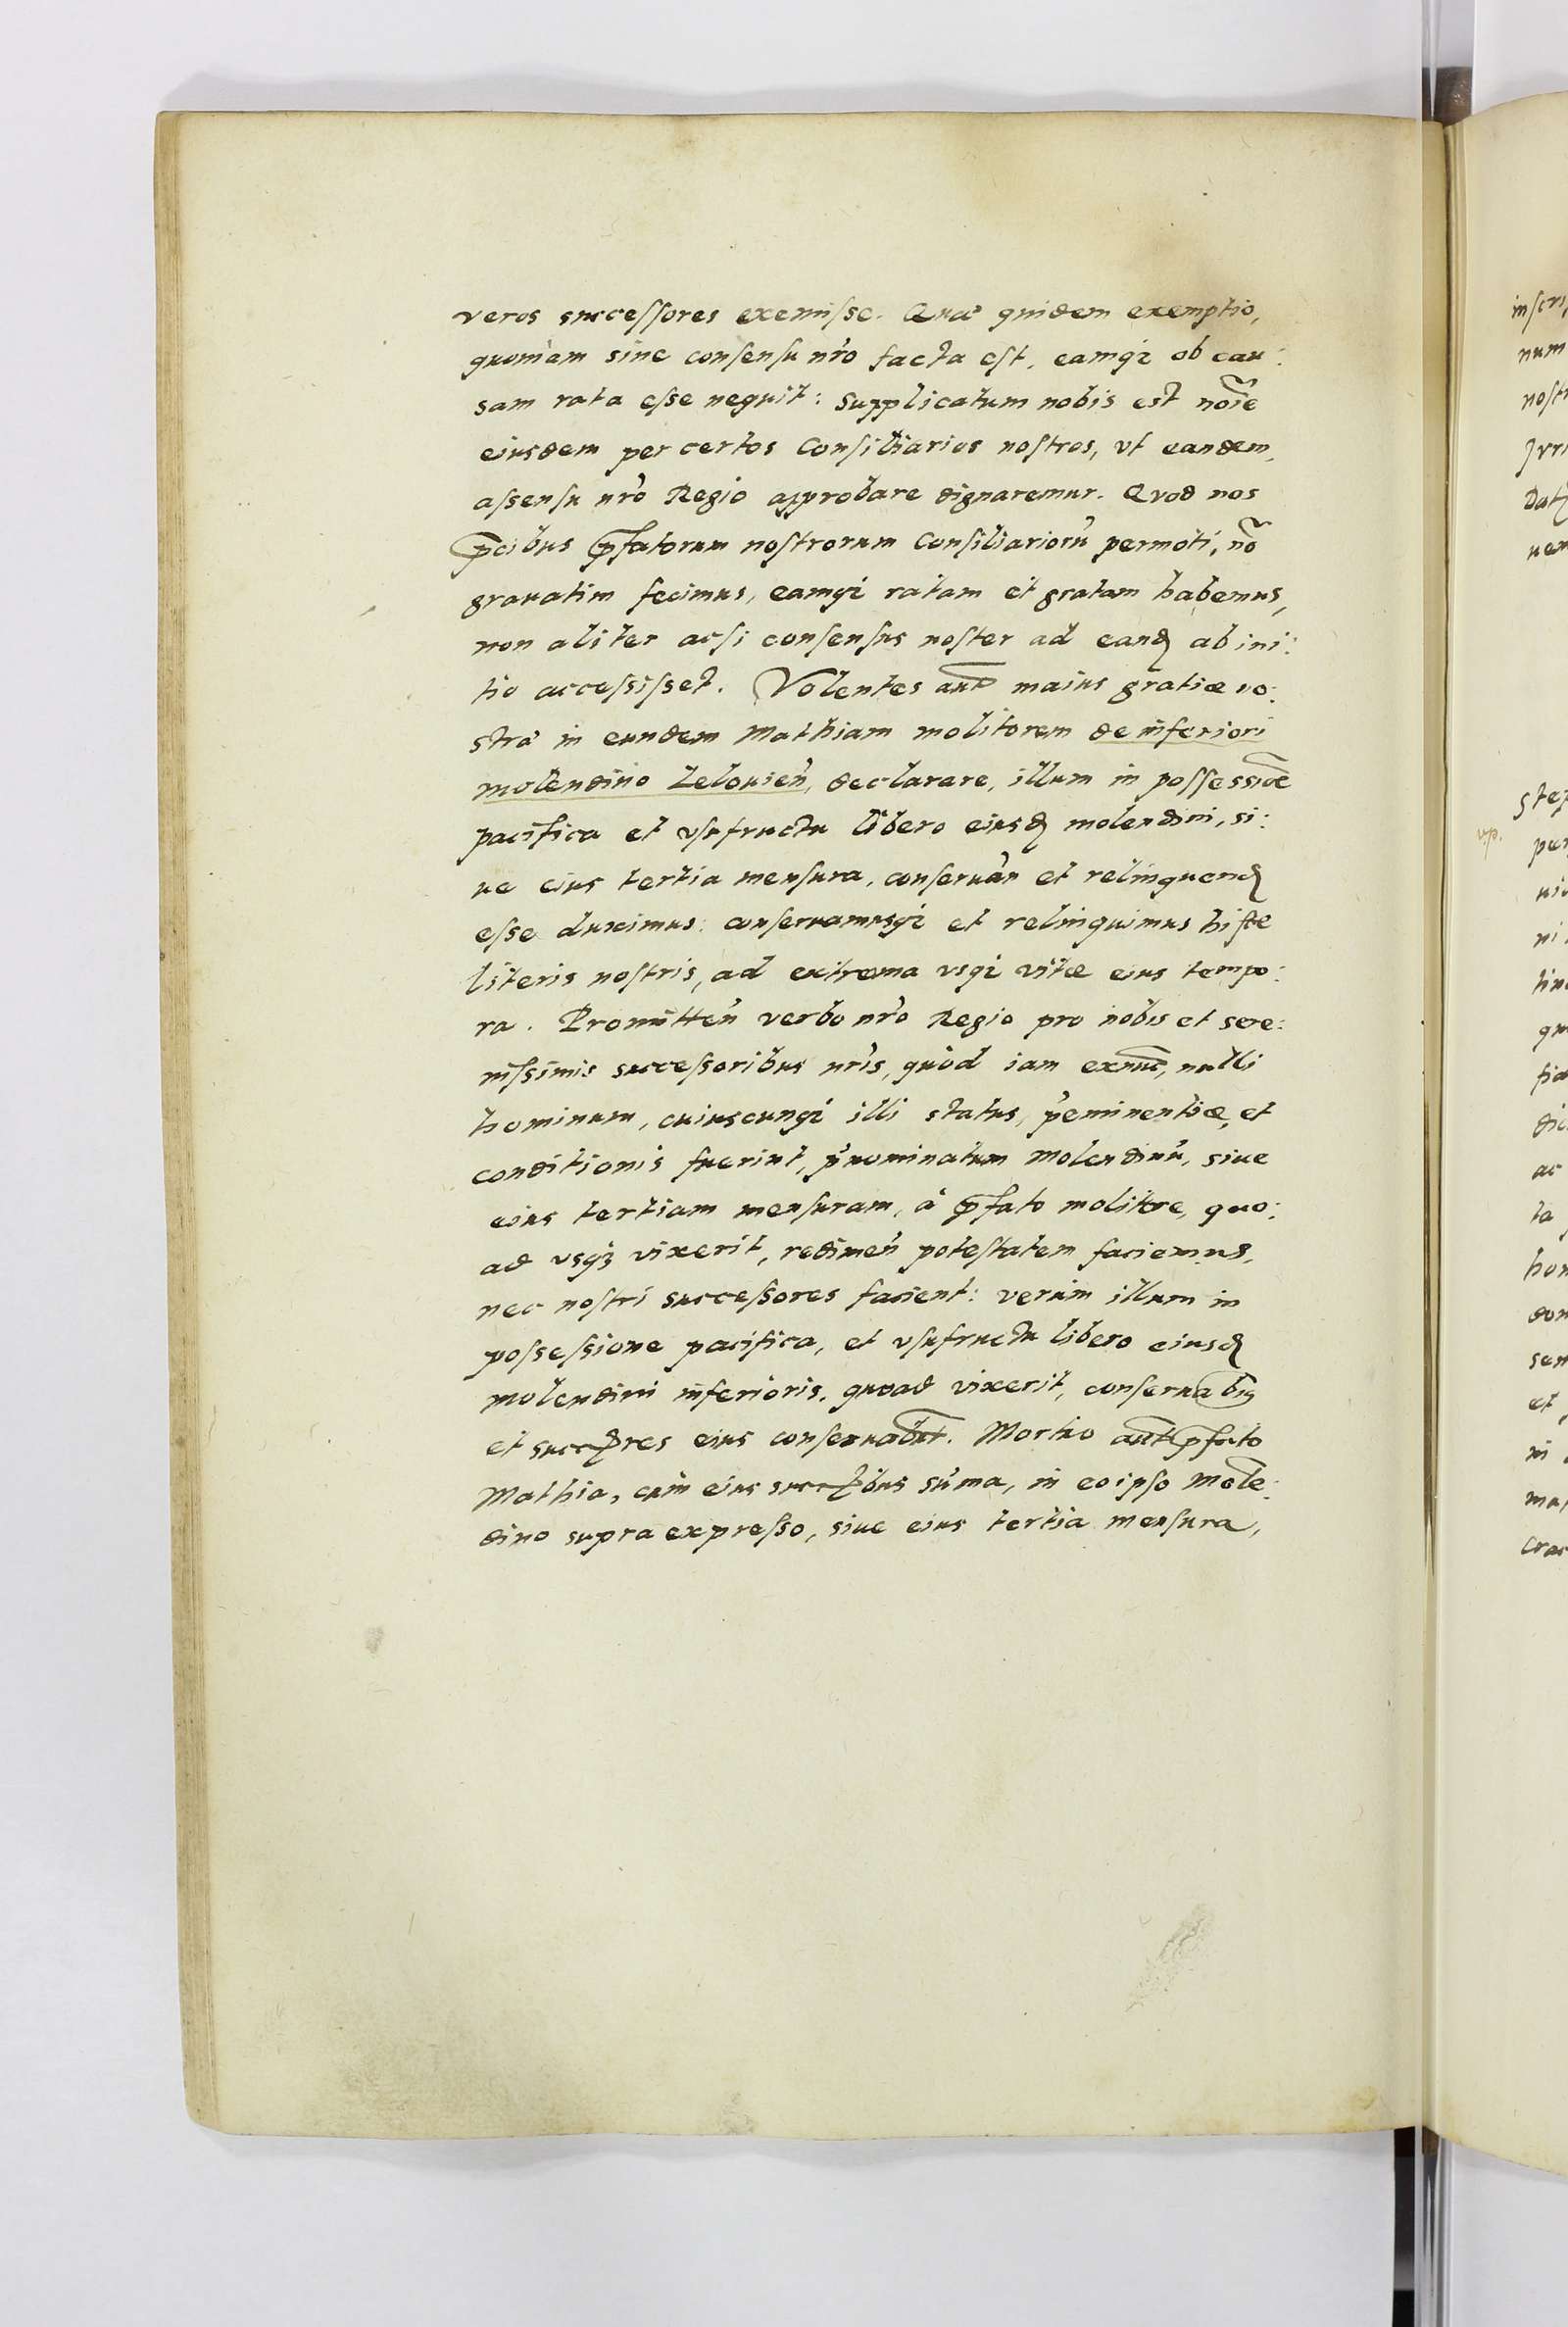 veros successores exemisse. Quæ quidem exemptio,
quoniam sine consensu nr̃o facta est, eamqꝫ ob cau:
sam rata esse nequit: Supplicatum nobis est noĩe
eiusdem per certos Consiliarios nostros, vt eandem,
assensu nr̃o Regio approbare dignaremur. Quod nos
p̃cibus p̃fatorum nostrorum Consiliariorũ permoti, nõ
grauatim fecimus, eamqꝫ ratam et gratam habemus,
non aliter acsi consensus noster ad eandꝫ ab ini:
tio accessisset. Volentes aut̃ maius gratiæ no:
stræ in eundem Mathiam molitorem de inferiori
molendino Lelouieñ, declarare, illum in possessiõe
pacifica et vsufructu libero eiusdꝫ molendini, si:
ue eius tertia mensura, conseruañ et relinquendꝫ
esse duximus: conseruamusqꝫ et relinquimus hisce
literis nostris, ad extrema vsqꝫ vitæ eius tempo:
ra. Promitteñ verbo nr̃o Regio pro nobis et sere:
nissimis successoribus nr̃is, quòd iam exnũc, nulli
hominum, cuiuscunqꝫ illi status, p̃eminentiæ, et
conditionis fuerint, p̃nominatum molendinũ, siue
eius tertiam mensuram, à p̃fato molitore, quo:
ad vsqꝫ vixerit, redimeñ potestatem faciemus,
nec nostri successores facient: verùm illum in
possessione pacifica, et vsufructu libero eiusdꝫ
molendini inferioris, quoad vixerit, conseruabimꝰ
et succ̃res eius conseruabũt. Mortuo aut̃ p̃fato
Mathia, cum eius succ̃ibus sũma, in eo ipso molẽ:
dino supra expresso, siue eius tertia mensura,